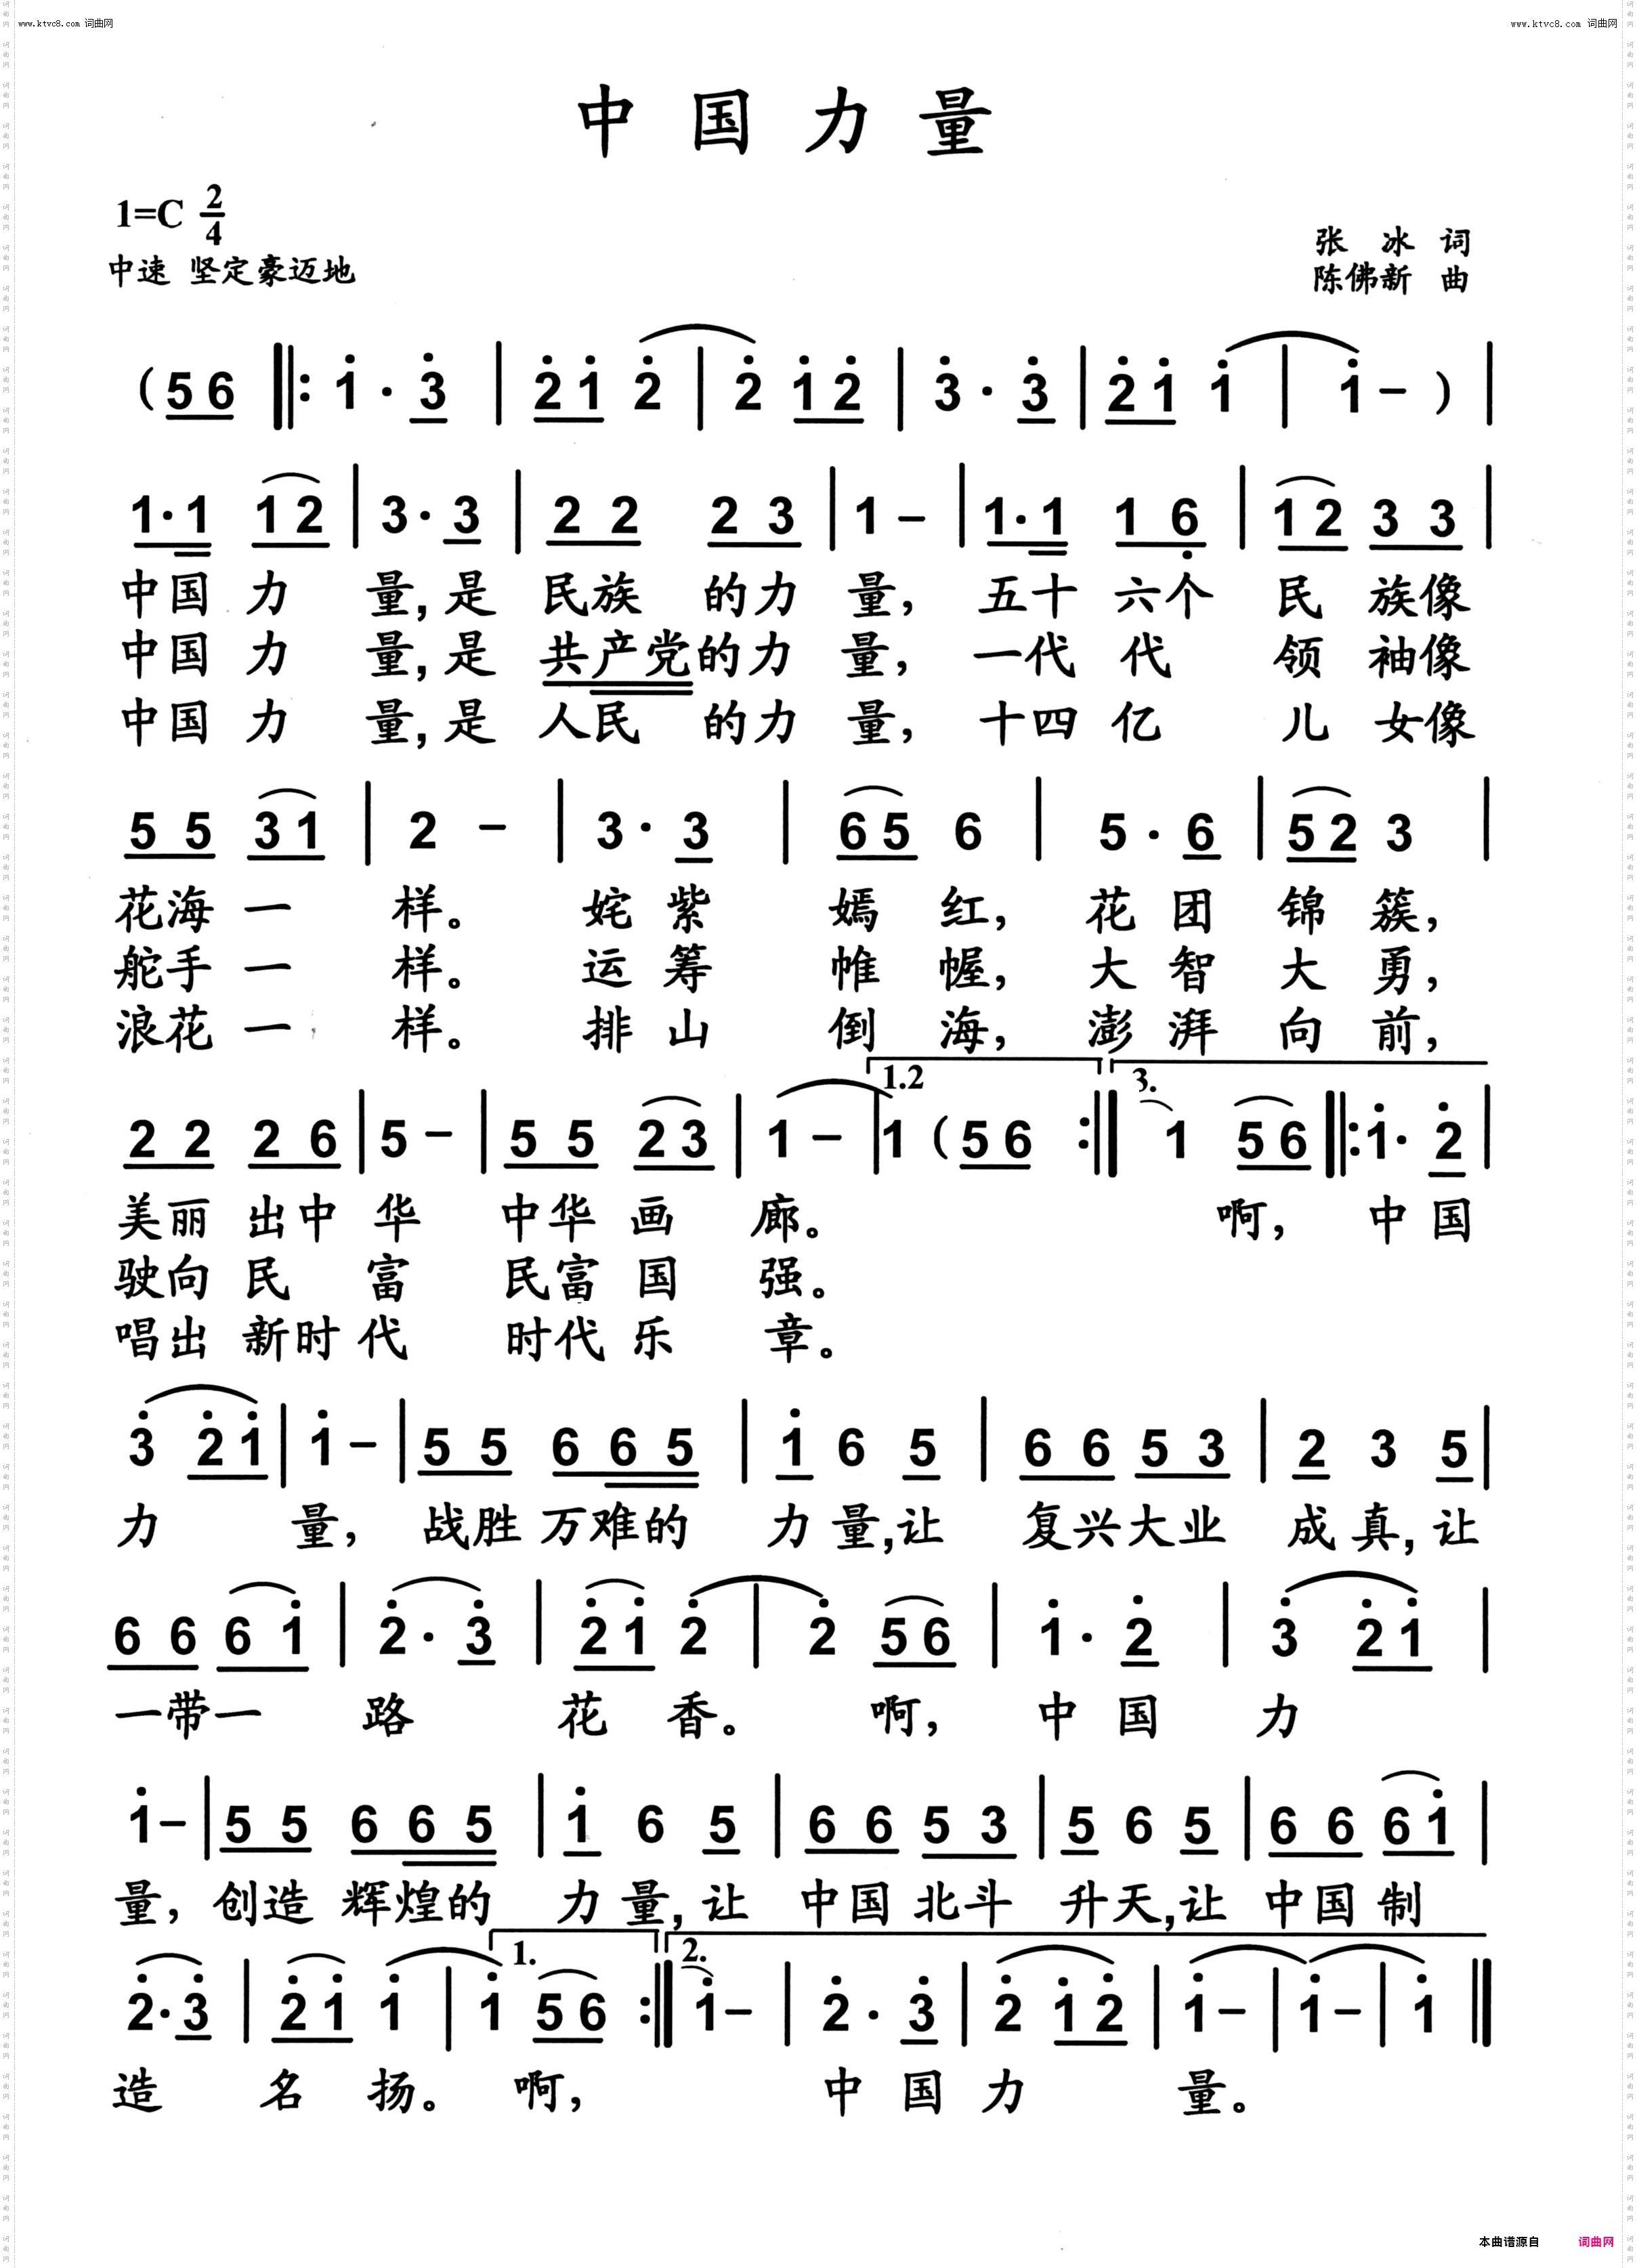 www.ktvc8.com 词曲网 www.ktvc8.com 词曲网
中国力量
1=C 2/4
中速 坚定豪迈地
张 冰 词
陈佛新 曲
(5 6 ‖: 1̇ · 3̇ | 2̇ 1̇ 2̇ | 2̇ 1̇ 2̇ | 3̇ · 3̇ | 2̇ 1̇ 1̇ | 1̇ – ) |
1 · 1 1 2 | 3 · 3 | 2 2 2 3 | 1 – | 1 · 1 1 6̣ | 1 2 3 3 |
中国 力 量,是 民族 的力 量, 五十 六个 民 族像
中国 力 量,是 共产党的力 量, 一代 代 领 袖像
中国 力 量,是 人民 的力 量, 十四 亿 儿 女像
5 5 3 1 | 2 – | 3 · 3 | 6 5 6 | 5 · 6 | 5 2 3 |
花海 一 样。 姹 紫 嫣 红, 花 团 锦 簇,
舵手 一 样。 运 筹 帷 幄, 大 智 大 勇,
浪花 一 样。 排 山 倒 海, 澎 湃 向 前,
1.2 3.
2 2 2 6 | 5 – | 5 5 2 3 | 1 – | 1 (5 6 :‖ 1 5 6 ‖: 1̇ · 2̇ |
美丽 出中 华 中华 画 廊。 啊, 中 国
驶向 民 富 民富 国 强。
唱出 新时 代 时代 乐 章。
3̇ 2̇ 1̇ | 1̇ – | 5 5 6 6 5 | 1̇ 6 5 | 6 6 5 3 | 2 3 5 |
力 量, 战胜 万难的 力 量,让 复兴大业 成 真,让
6 6 6 1̇ | 2̇ · 3̇ | 2̇ 1̇ 2̇ | 2̇ 5 6 | 1̇ · 2̇ | 3̇ 2̇ 1̇ |
一带一 路 花 香。 啊, 中 国 力
1̇ – | 5 5 6 6 5 | 1̇ 6 5 | 6 6 5 3 | 5 6 5 | 6 6 6 1̇ |
量, 创造 辉煌的 力 量,让 中国 北斗 升天,让 中国 制
1. 2.
2̇ · 3̇ | 2̇ 1̇ 1̇ | 1̇ 5 6 :‖ 1̇ – | 2̇ · 3̇ | 2̇ 1̇ 2̇ | 1̇ – | 1̇ – | 1̇ ‖
造 名 扬。 啊, 中 国 力 量。
本曲谱源自 词曲网